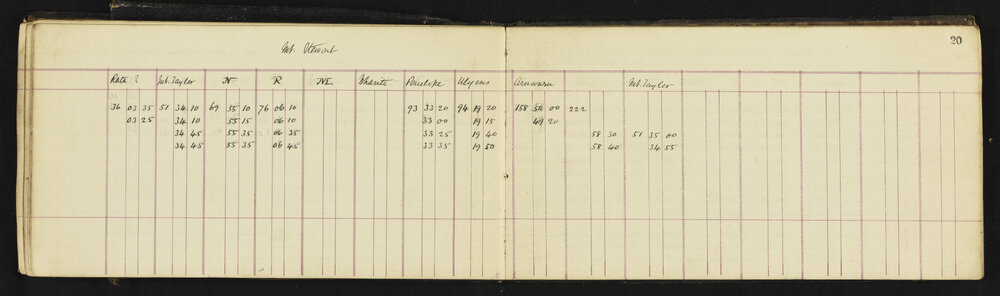 20
Mt. Stewart
Mt. Taylor N R M Penelope Ulysses Mt. Taylor
36
36 03 35 51 34 10 69 55 10 76 06 10 93 33 20 94 19 20 158 00 222
03 25 34 10 55 15 06 10 33 00 19 15 49 20
34 45 55 35 06 35 33 25 19 40 58 30 51 35 00
34 45 55 35 06 45 33 35 19 50 58 40 34 55